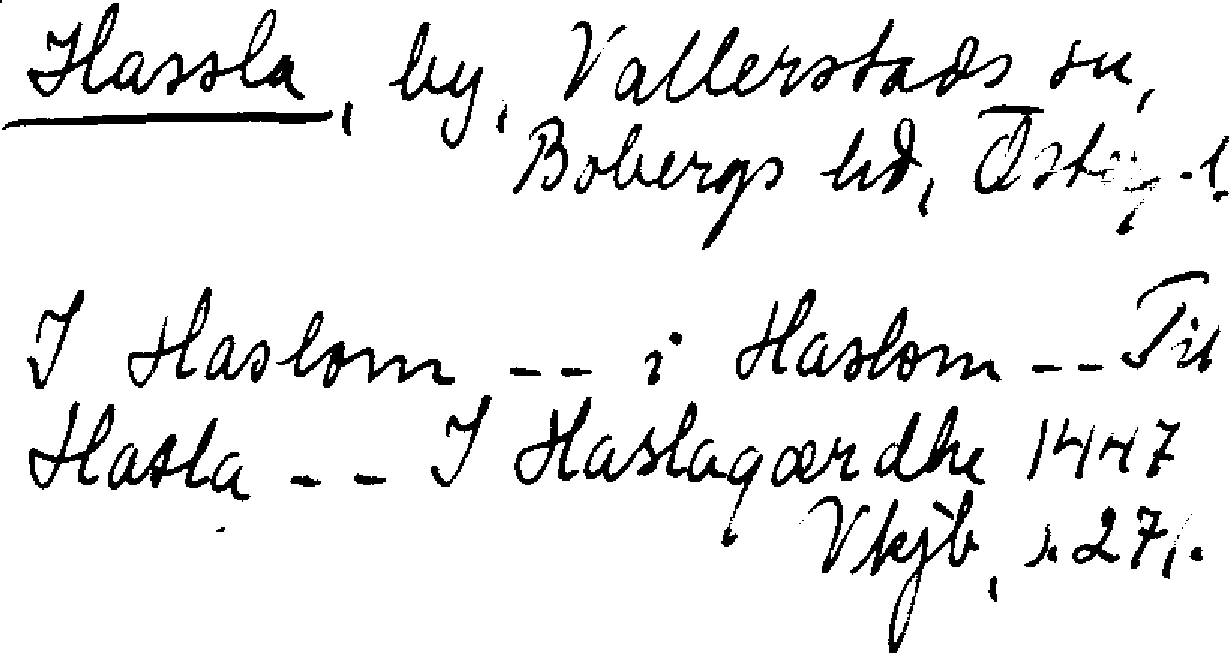 Hassla, by, Vallerstads sn,
Bobergs hd, Östg.l.
I Haslom -- i Haslom -- Til
Hasla -- I Haslagærdhe 1447
Vkjb, s. 27f.